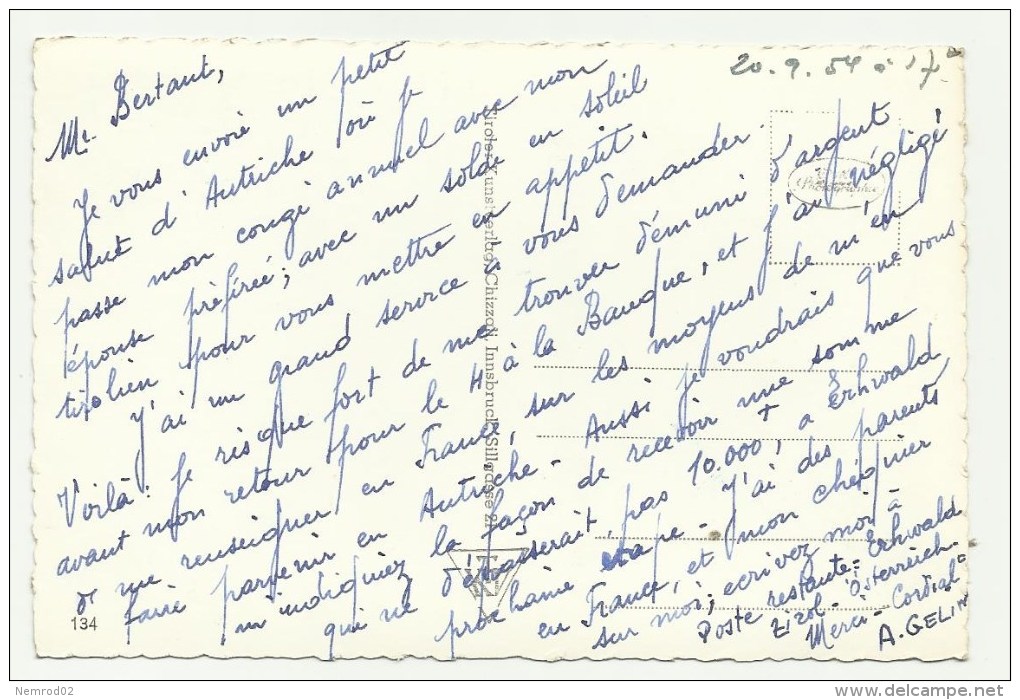 20.9.54 à 17
Mr. Bertaut,
Je vous envoie un petit
salut d'Autriche où je
passe mon congé annuel avec mon
épouse préférée; avec un solde en soleil
tirolien pour vous mettre en appétit.
J'ai un grand service à vous demander.
Voilà: je risque fort de me trouver démuni d'argent
avant mon retour pour le 4 à la Banque, et j'ai négligé
de me renseigner en France, sur les moyens de m'en
faire parvenir en Autriche - Aussi je voudrais que vous
m'indiquiez la façon de recevoir une somme
qui ne dépasserait pas 10.000, à Erhwald
prochaine étape - J'ai des parents
en France, et mon chéquier
sur moi; écrivez moi à
Poste restante = Erhwald
Tirol - Österreich -
Merci - Cordial=
A. GELIN
Tiroler Kunstverlag Chizzali, Innsbruck, Sillgasse 21
134
Nemrod02
www.delcampe.net